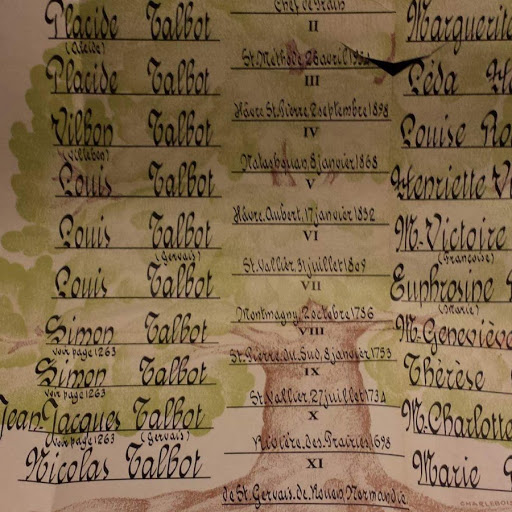 Chef de train
Placide Talbot Marguerite
(Alcide) II
St. Méthode, 26 avril 1934
Placide Talbot Léda
III
Hâvre St. Pierre, 2 septembre 1898
Vilbon Talbot Louise
(Villebon) IV
Natashquan, 8 janvier 1868
Louis Talbot Henriette
V
Hâvre. Aubert, 17 janvier 1832
Louis Talbot M. Victoire
(Gervais) VI (Françoise)
St. Vallier, 31 juillet 1809
Louis Talbot Euphrosine
VII (Marie)
Montmagny, 2 octobre 1786
Simon Talbot M. Geneviève
voir page 1263 VIII
St. Pierre. du. Sud, 8 janvier 1753
Simon Talbot Thérèse
voir page 1263 IX
St. Vallier, 27 juillet 1734
Jean-Jacques Talbot M. Charlotte
voir page 1263 (Gervais) X
Rivière. des. Prairies 1698
Nicolas Talbot Marie
XI
de St. Gervais. de. Rouen, Normandie